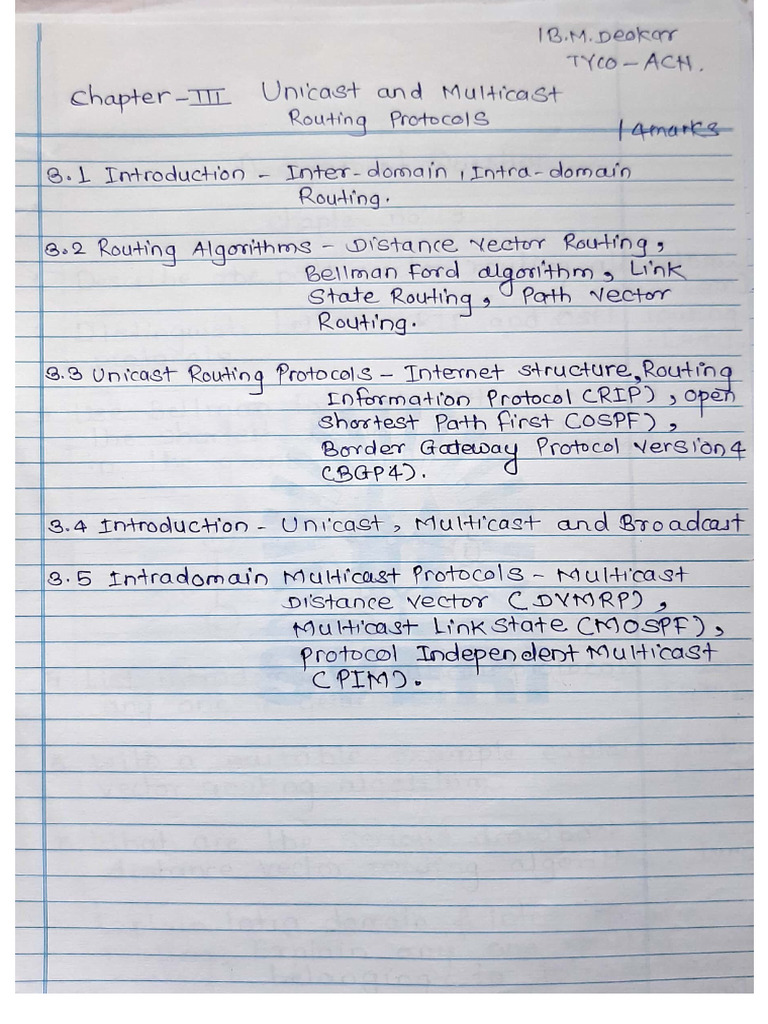 B.M. Deokar
TYCO - ACN.
Chapter - III Unicast and Multicast
Routing Protocols
14marks
3.1 Introduction - Inter-domain, Intra-domain
Routing.
3.2 Routing Algorithms - Distance Vector Routing,
Bellman Ford algorithm, Link
State Routing, Path Vector
Routing.
3.3 Unicast Routing Protocols - Internet structure, Routing
Information Protocol (RIP), open
Shortest Path first (OSPF),
Border Gateway Protocol version 4
(BGP4).
3.4 Introduction - Unicast, Multicast and Broadcast
3.5 Intradomain Multicast Protocols - Multicast
Distance Vector (DVMRP),
Multicast Link State (MOSPF),
Protocol Independent Multicast
(PIM).